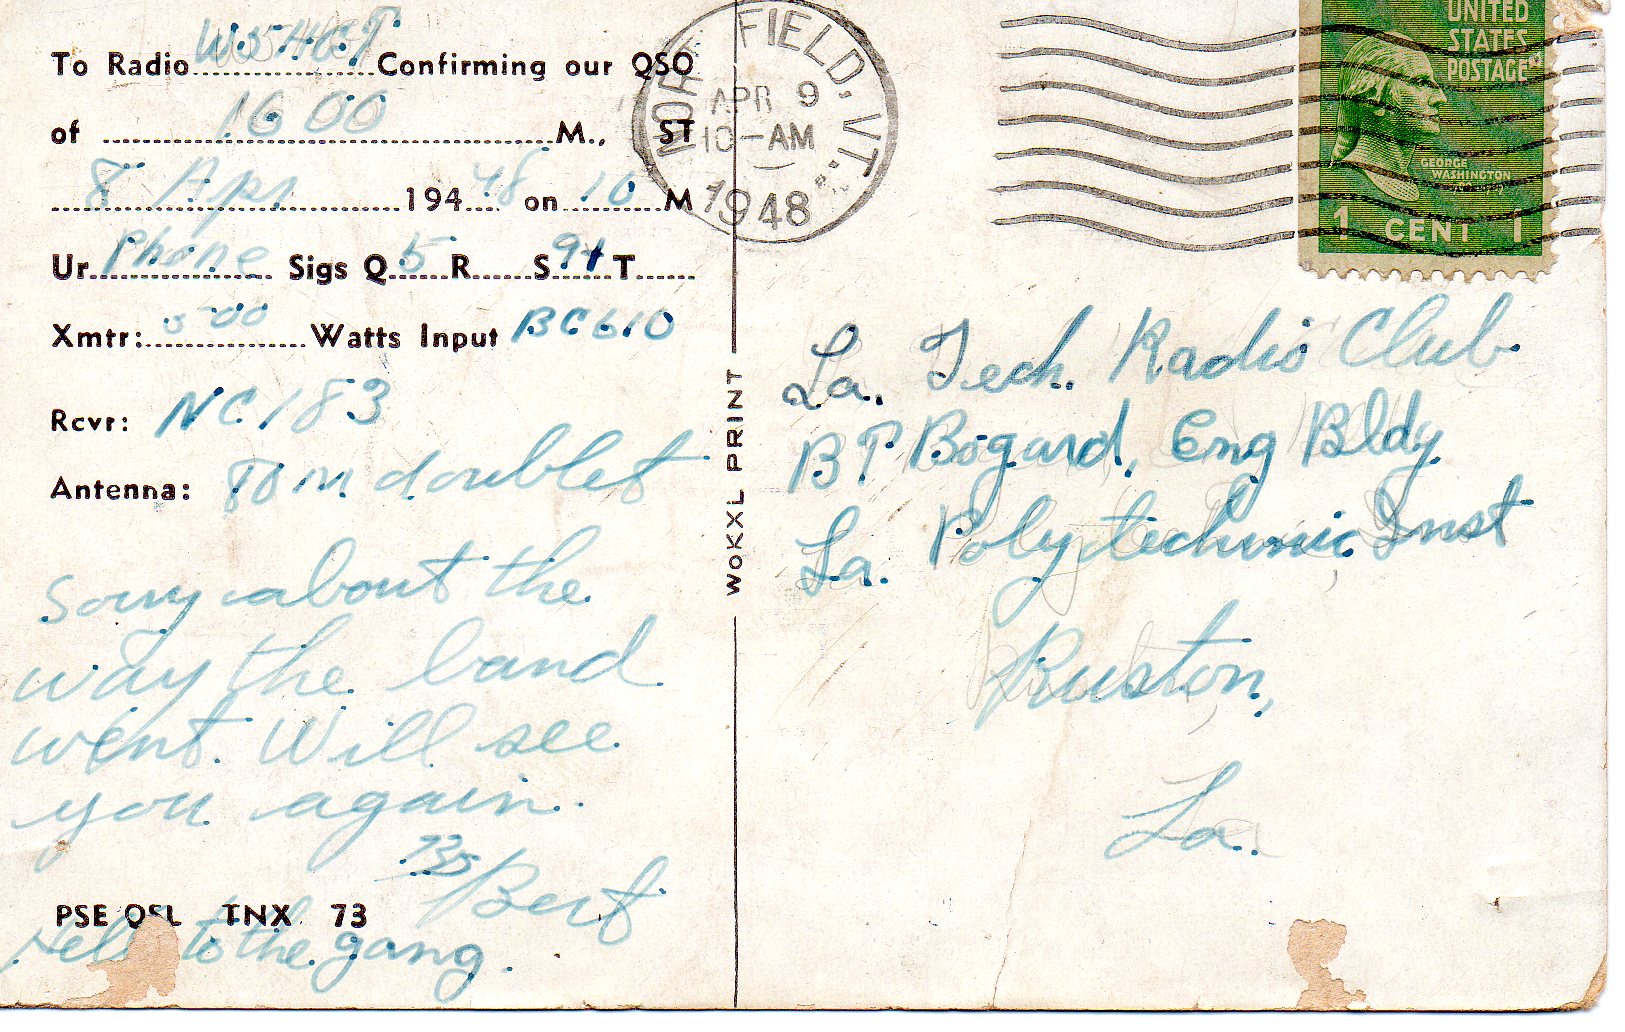 To Radio W5HGT Confirming our QSO
of 1600 M., ST
8 Apr 194 48 on 10 M
Ur Phone Sigs Q 5 R S 9+ T
Xmtr: 500 Watts Input BC610
Rcvr: NC183
Antenna: 10 m doublet
Sorry about the
way the band
went. Will see
you again.
73s
Bert
PSE QSL TNX 73
Hello to the gang.
WOKXL PRINT
FIELD, VT.
APR 9
10-AM
1948
UNITED
STATES
POSTAGE
GEORGE
WASHINGTON
1 CENT 1
La. Tech. Radio Club
BT Bogard, Eng Bldy
La. Polytechnic Inst
Ruston,
La.